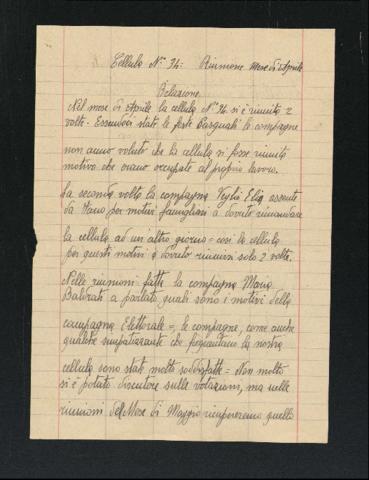 Cellula N° 34: Riunione Mese di Aprile
Relazione
Nel mese di Aprile la cellula N° 34 si è riunita 2
volte. Essendoci state le feste Pasquali le compagne
non anno voluto che la cellula si fosse riunita
motivo che erano occupate al proprio lavoro.
La seconda volta la compagna Veglio Elia assente
da Fano per motivi famigliari a dovuto rimandare
la cellula ad un'altro giorno = così la cellula
per questi motivi a dovuto riunirsi solo 2 volte.
Nelle riunioni fatte la compagna Maria
Baldrati a parlato quali sono i motivi della
campagna Elettorale =, le compagne, come anche
qualche simpatizzante che frequentano la nostra
cellula sono state molto sodisfatte = Non molto
si è potuto discutere sulle votazioni, ma nelle
riunioni del Mese di Maggio ricupereremo quello